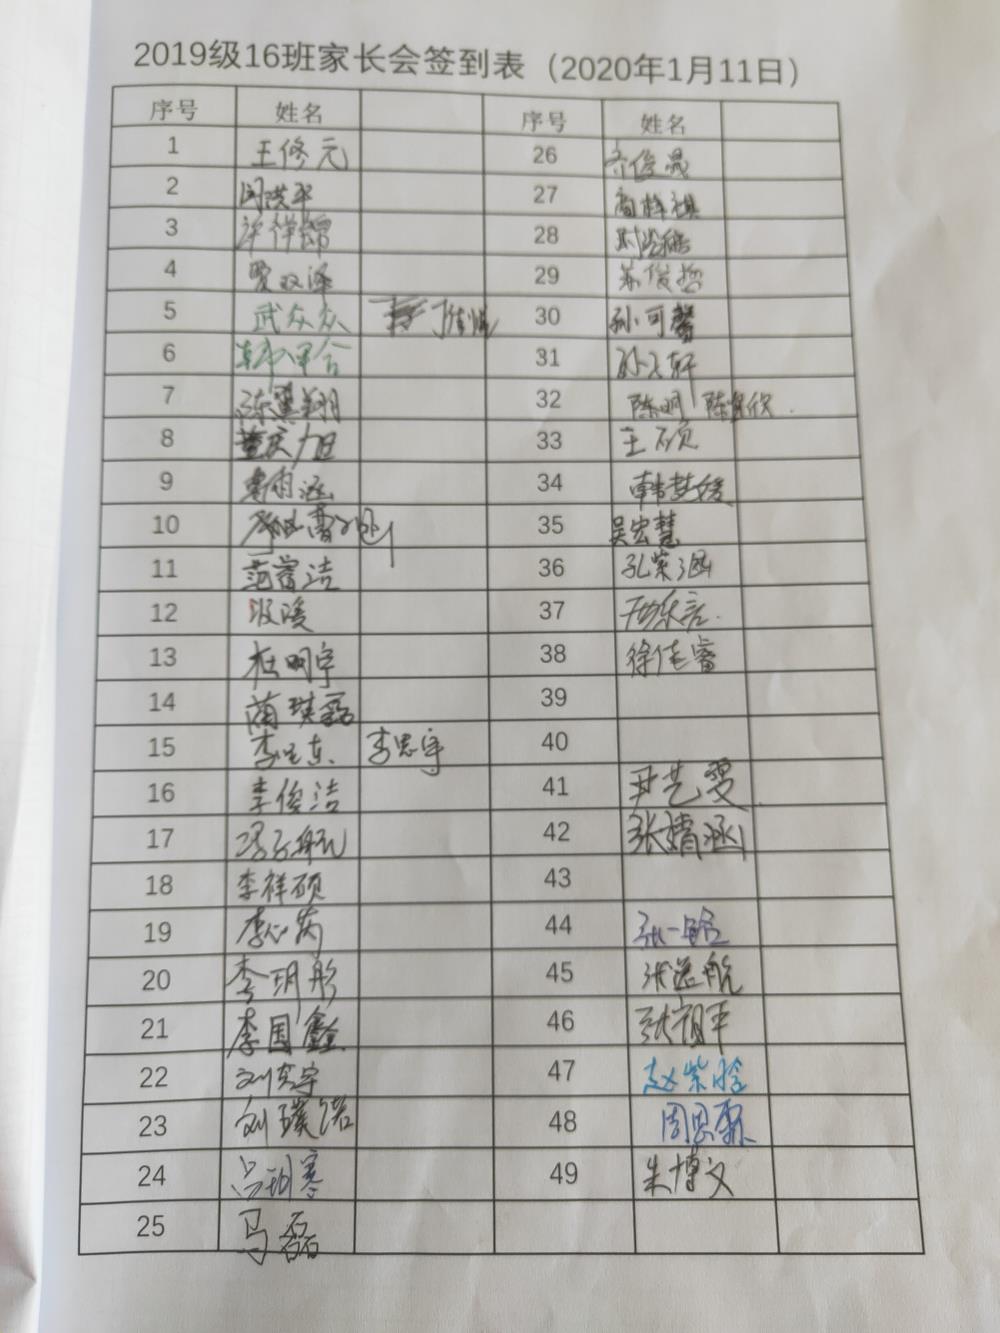 2019级16班家长会签到表（2020年1月11日）
序号 姓名 序号 姓名
1 王修元 26 齐俊晟
2 闫洪平 27 高梓祺
3 28
4 贾双泽 29 苏俊哲
5 武众众 30 孙可馨
6 31 孙文轩
7 陈冀翔 32 陈明 陈
8 董庆旭 33 王硕
9 曹雨涵 34 韩梦媛
10 35 吴宏慧
11 范富洁 36 孔紫涵
12 37
13 杜明宇 38 徐佳睿
14 蔺琪磊 39
15 李 东 李思宇 40
16 李俊洁 41 尹艺雯
17 42 张婧涵
18 李祥硕 43
19 李心芮 44 张一晗
20 李玥彤 45 张逸航
21 李国鑫 46 张福平
22 刘东宇 47 赵紫晗
23 刘璞诺 48 周思霖
24 吕玥寒 49 朱博文
25 马磊